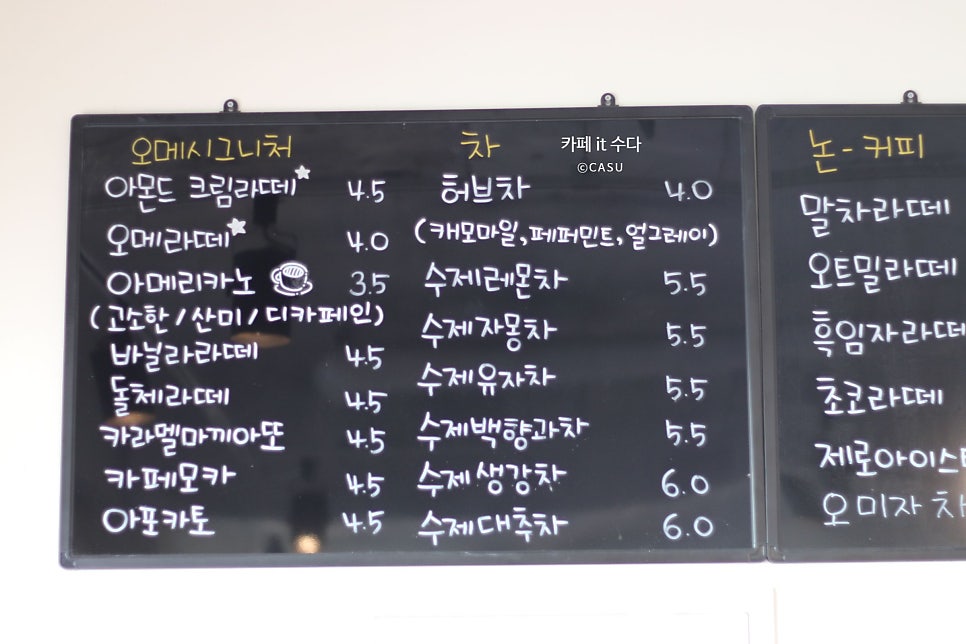 오메시그니처
아몬드 크림라떼 4.5
오메라떼 4.0
아메리카노 3.5
(고소한/산미/디카페인)
바닐라라떼 4.5
돌체라떼 4.5
카라멜마끼아또 4.5
카페모카 4.5
아포카토 4.5
차
카페 it 수다
©CASU
허브차 4.0
(캐모마일,페퍼민트,얼그레이)
수제레몬차 5.5
수제자몽차 5.5
수제유자차 5.5
수제백향과차 5.5
수제생강차 6.0
수제대추차 6.0
논-커피
말차라떼
오트밀라떼
흑임자라떼
초코라떼
제로아이스
오미자 차